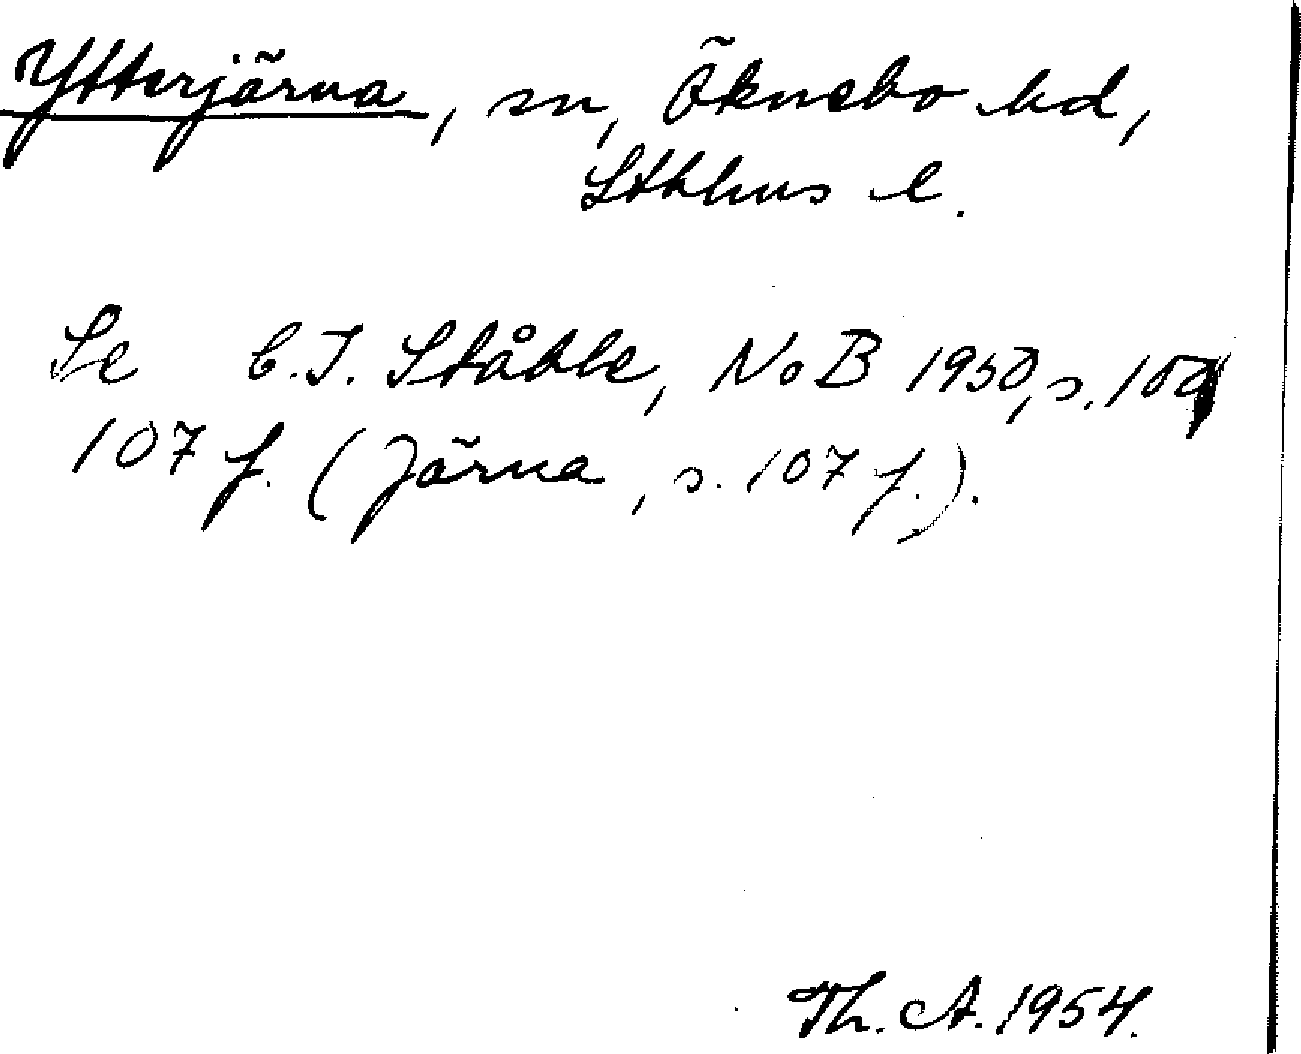 Ytterjärna, sn, Öknebo hd,
Sthlms l.
Se C.I. Ståhle, NoB 1950, s. 100,
107 f. (Järna, s. 107 f.).
Th. A. 1954.